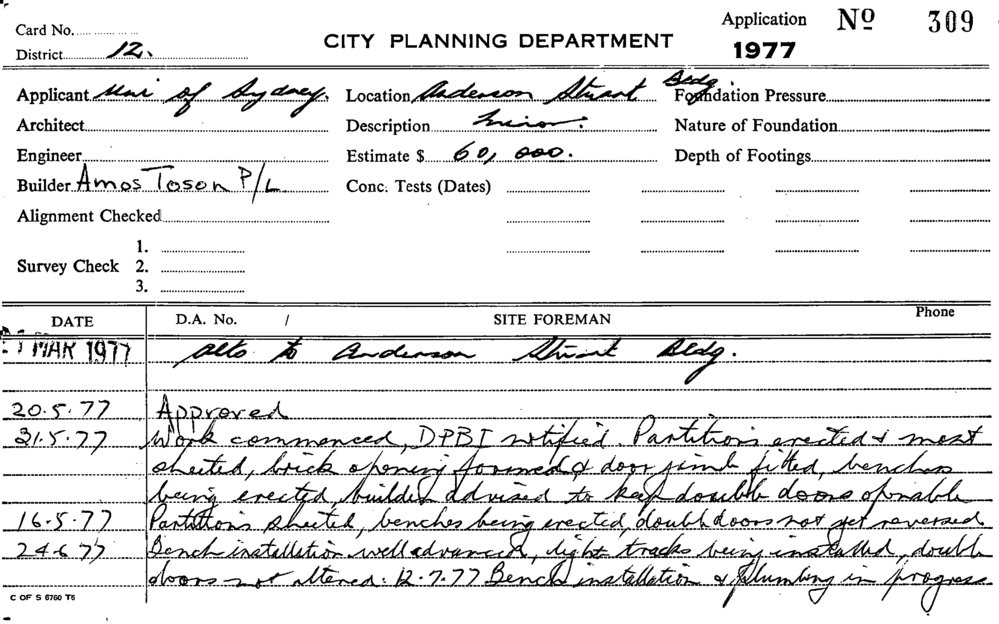 Card No.
District 12.
CITY PLANNING DEPARTMENT
Application No 309
1977
Applicant Uni of Sydney. Location Anderson Stuart Bldg. Foundation Pressure
Architect Description Minor. Nature of Foundation
Engineer Estimate $ 60,000. Depth of Footings
Builder Amos Toson P/L Conc. Tests (Dates)
Alignment Checked
1.
Survey Check 2.
3.
DATE D.A. No. / SITE FOREMAN Phone
MAR 1977 alts to Anderson Stuart Bldg.
20.5.77 Approved
31.5.77 Work commenced, DPBI notified. Partitions erected & most
sheeted, brick opening formed & door jimb fitted, benches
being erected, builder advised to keep double doors openable
16.5.77 Partitions sheeted, benches being erected, double doors not yet reversed
24.6.77 Bench installation well advanced, light tracks being installed, double
doors not altered. 12.7.77 Bench installation & plumbing in progress
C OF S 6760 T6